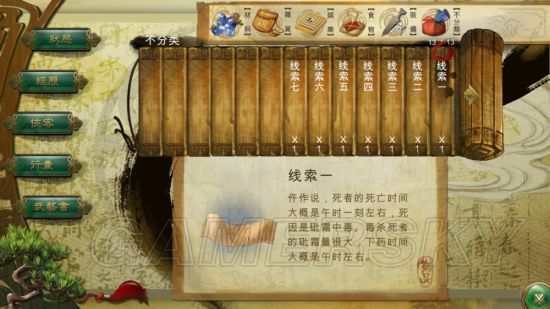 【材料】
【雜質】
【娛樂】
【食物】
【裝備】
【不分類】
不分类
13 / 13
线索七 X1
线索六 X1
线索五 X1
线索四 X1
线索三 X1
线索二 X1
线索一 X1
狀態
經歷
俠客
行囊
武藝書
线索一
仵作说，死者的死亡时间
大概是午时一刻左右，死
因是砒霜中毒。毒杀死者
的砒霜量很大，下药时间
大概是午时左右。
物品
GAMERSKY